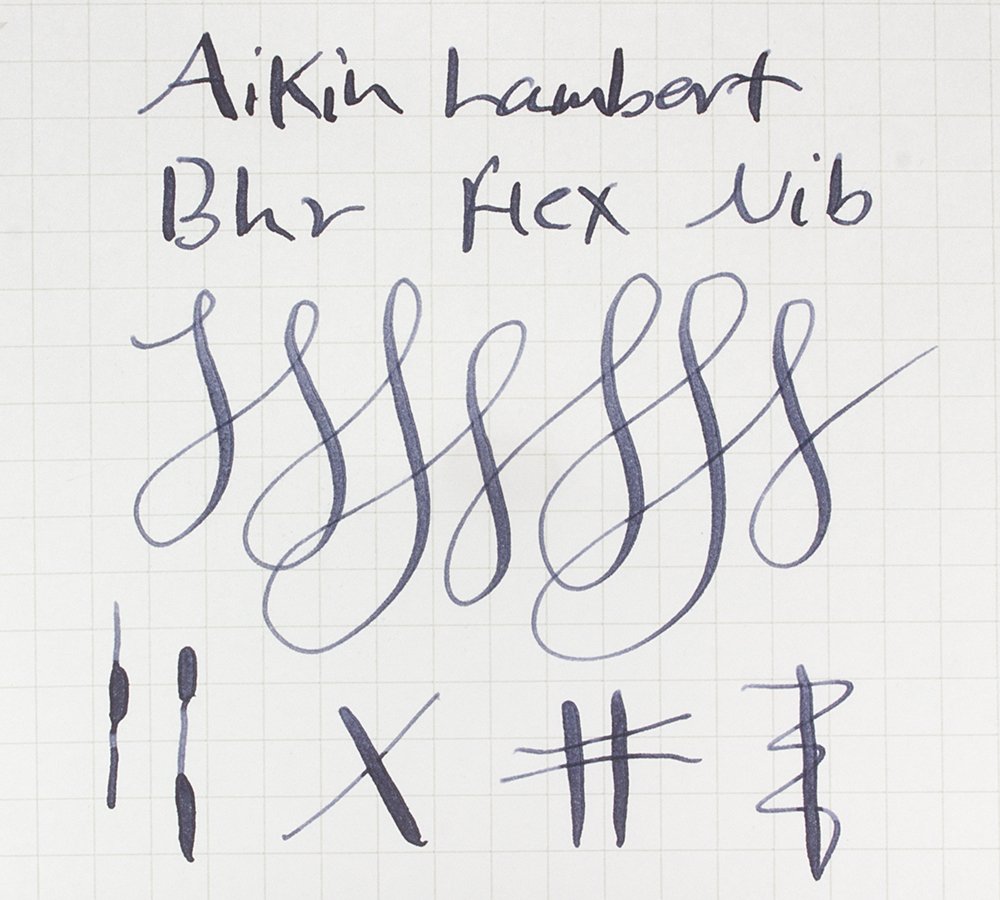 Aikin Lambert
Bhr Flex Nib